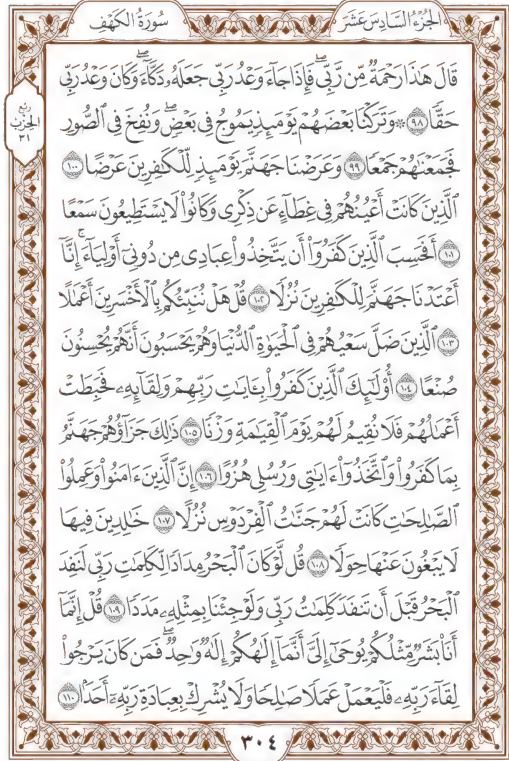 الجزء السادس عشر
سورة الكهف
قَالَ هَٰذَا رَحْمَةٌ مِّن رَّبِّي ۖ فَإِذَا جَآءَ وَعْدُ رَبِّي جَعَلَهُۥ دَكَّآءَ ۖ وَكَانَ وَعْدُ رَبِّي
حَقًّا ٩٨ ۞ وَتَرَكْنَا بَعْضَهُمْ يَوْمَئِذٍ يَمُوجُ فِي بَعْضٍ ۖ وَنُفِخَ فِي ٱلصُّورِ
ربع
الحزب
٣١
فَجَمَعْنَٰهُمْ جَمْعًا ٩٩ وَعَرَضْنَا جَهَنَّمَ يَوْمَئِذٍ لِّلْكَٰفِرِينَ عَرْضًا ١٠٠
ٱلَّذِينَ كَانَتْ أَعْيُنُهُمْ فِي غِطَآءٍ عَن ذِكْرِي وَكَانُوا۟ لَا يَسْتَطِيعُونَ سَمْعًا
١٠١ أَفَحَسِبَ ٱلَّذِينَ كَفَرُوٓا۟ أَن يَتَّخِذُوا۟ عِبَادِي مِن دُونِيٓ أَوْلِيَآءَ ۚ إِنَّآ
أَعْتَدْنَا جَهَنَّمَ لِلْكَٰفِرِينَ نُزُلًا ١٠٢ قُلْ هَلْ نُنَبِّئُكُم بِٱلْأَخْسَرِينَ أَعْمَٰلًا
١٠٣ ٱلَّذِينَ ضَلَّ سَعْيُهُمْ فِي ٱلْحَيَوٰةِ ٱلدُّنْيَا وَهُمْ يَحْسَبُونَ أَنَّهُمْ يُحْسِنُونَ
صُنْعًا ١٠٤ أُو۟لَٰٓئِكَ ٱلَّذِينَ كَفَرُوا۟ بِـَٔايَٰتِ رَبِّهِمْ وَلِقَآئِهِۦ فَحَبِطَتْ
أَعْمَٰلُهُمْ فَلَا نُقِيمُ لَهُمْ يَوْمَ ٱلْقِيَٰمَةِ وَزْنًا ١٠٥ ذَٰلِكَ جَزَآؤُهُمْ جَهَنَّمُ
بِمَا كَفَرُوا۟ وَٱتَّخَذُوٓا۟ ءَايَٰتِي وَرُسُلِي هُزُوًا ١٠٦ إِنَّ ٱلَّذِينَ ءَامَنُوا۟ وَعَمِلُوا۟
ٱلصَّٰلِحَٰتِ كَانَتْ لَهُمْ جَنَّٰتُ ٱلْفِرْدَوْسِ نُزُلًا ١٠٧ خَٰلِدِينَ فِيهَا
لَا يَبْغُونَ عَنْهَا حِوَلًا ١٠٨ قُل لَّوْ كَانَ ٱلْبَحْرُ مِدَادًا لِّكَلِمَٰتِ رَبِّي لَنَفِدَ
ٱلْبَحْرُ قَبْلَ أَن تَنفَدَ كَلِمَٰتُ رَبِّي وَلَوْ جِئْنَا بِمِثْلِهِۦ مَدَدًا ١٠٩ قُلْ إِنَّمَآ
أَنَا۠ بَشَرٌ مِّثْلُكُمْ يُوحَىٰٓ إِلَيَّ أَنَّمَآ إِلَٰهُكُمْ إِلَٰهٌ وَٰحِدٌ ۖ فَمَن كَانَ يَرْجُوا۟
لِقَآءَ رَبِّهِۦ فَلْيَعْمَلْ عَمَلًا صَٰلِحًا وَلَا يُشْرِكْ بِعِبَادَةِ رَبِّهِۦٓ أَحَدًۢا ١١٠
٣٠٤